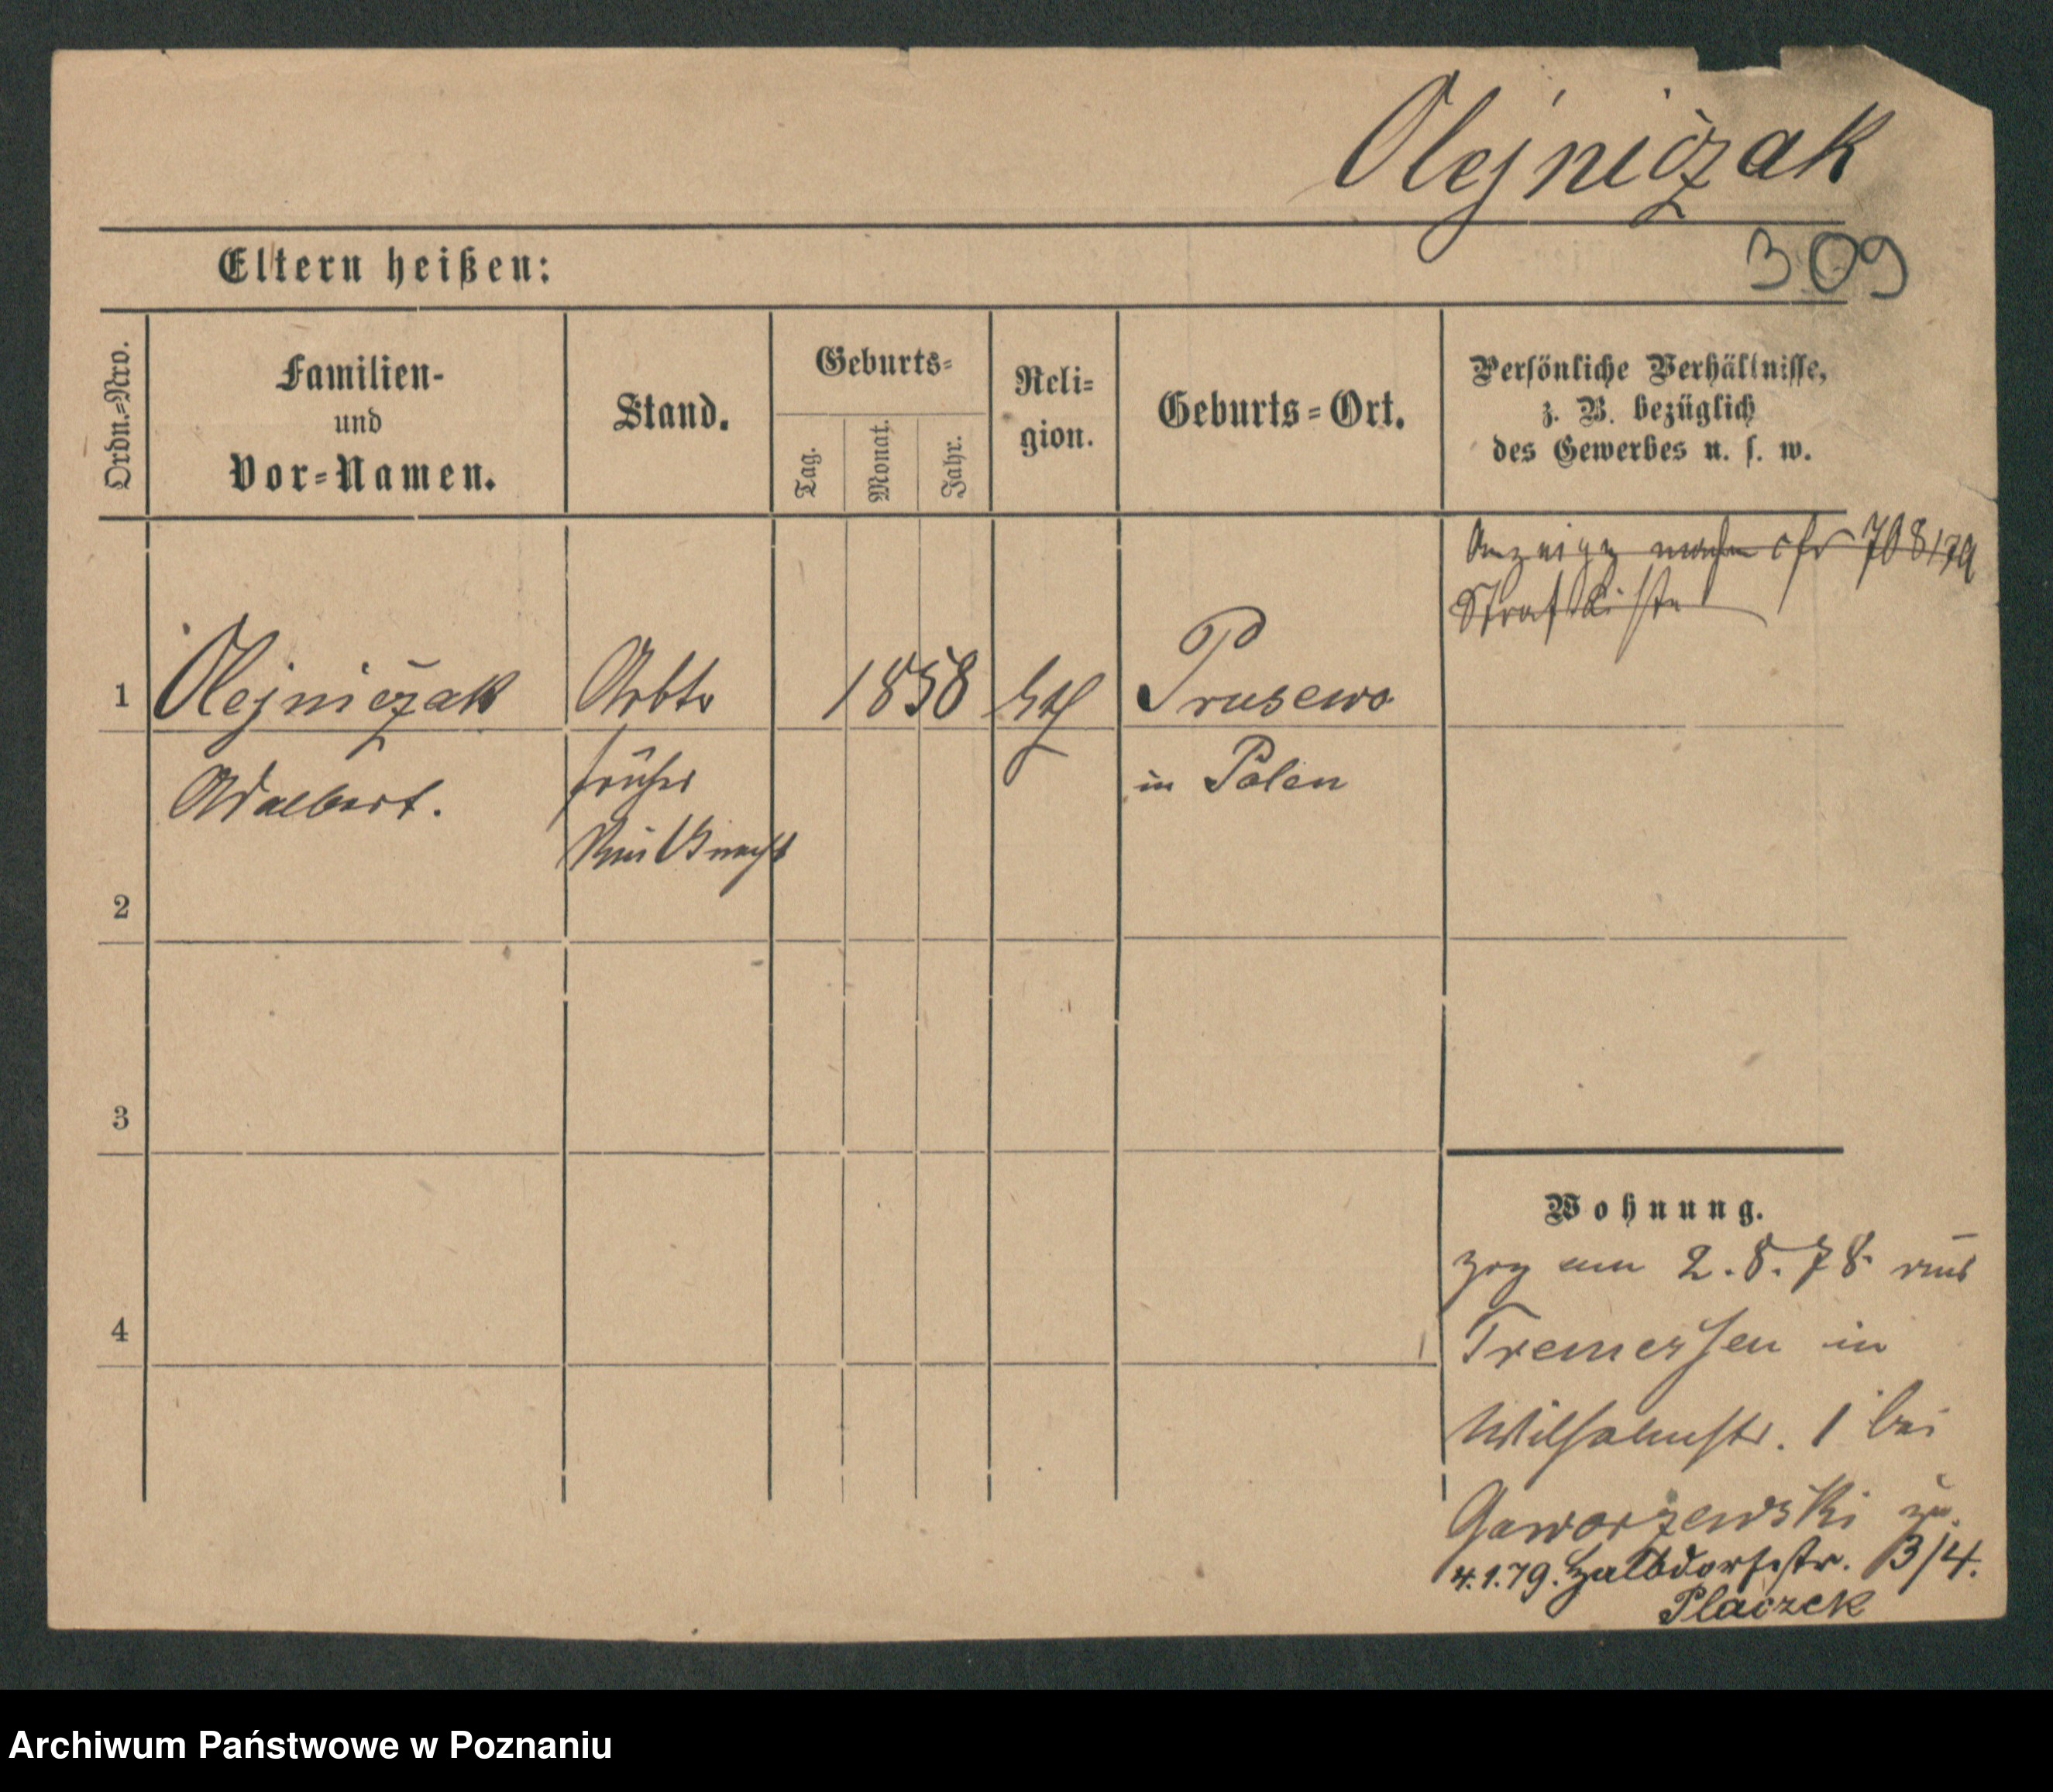 Olejniczak
309
Eltern heißen:
Ordn.=Nro.
Familien-
und
Vor=Namen.
Stand.
Geburts=
Tag.
Monat.
Jahr.
Reli=
gion.
Geburts=Ort.
Persönliche Verhältnisse,
z. B. bezüglich
des Gewerbes u. s. w.
Anzeige machen cfr 708/79
Strafliste
1 Olejniczak Arbtr 1858 kth Prusewo
Adalbert. früher in Polen
Knecht
2
3
4
Wohnung.
zog am 2.8.78 aus
Tremessen in
Wilhelmstr. 1 bei
Gaworzewski zu.
4.1.79. Halbdorfstr. 3/4.
Placzek
Archiwum Państwowe w Poznaniu